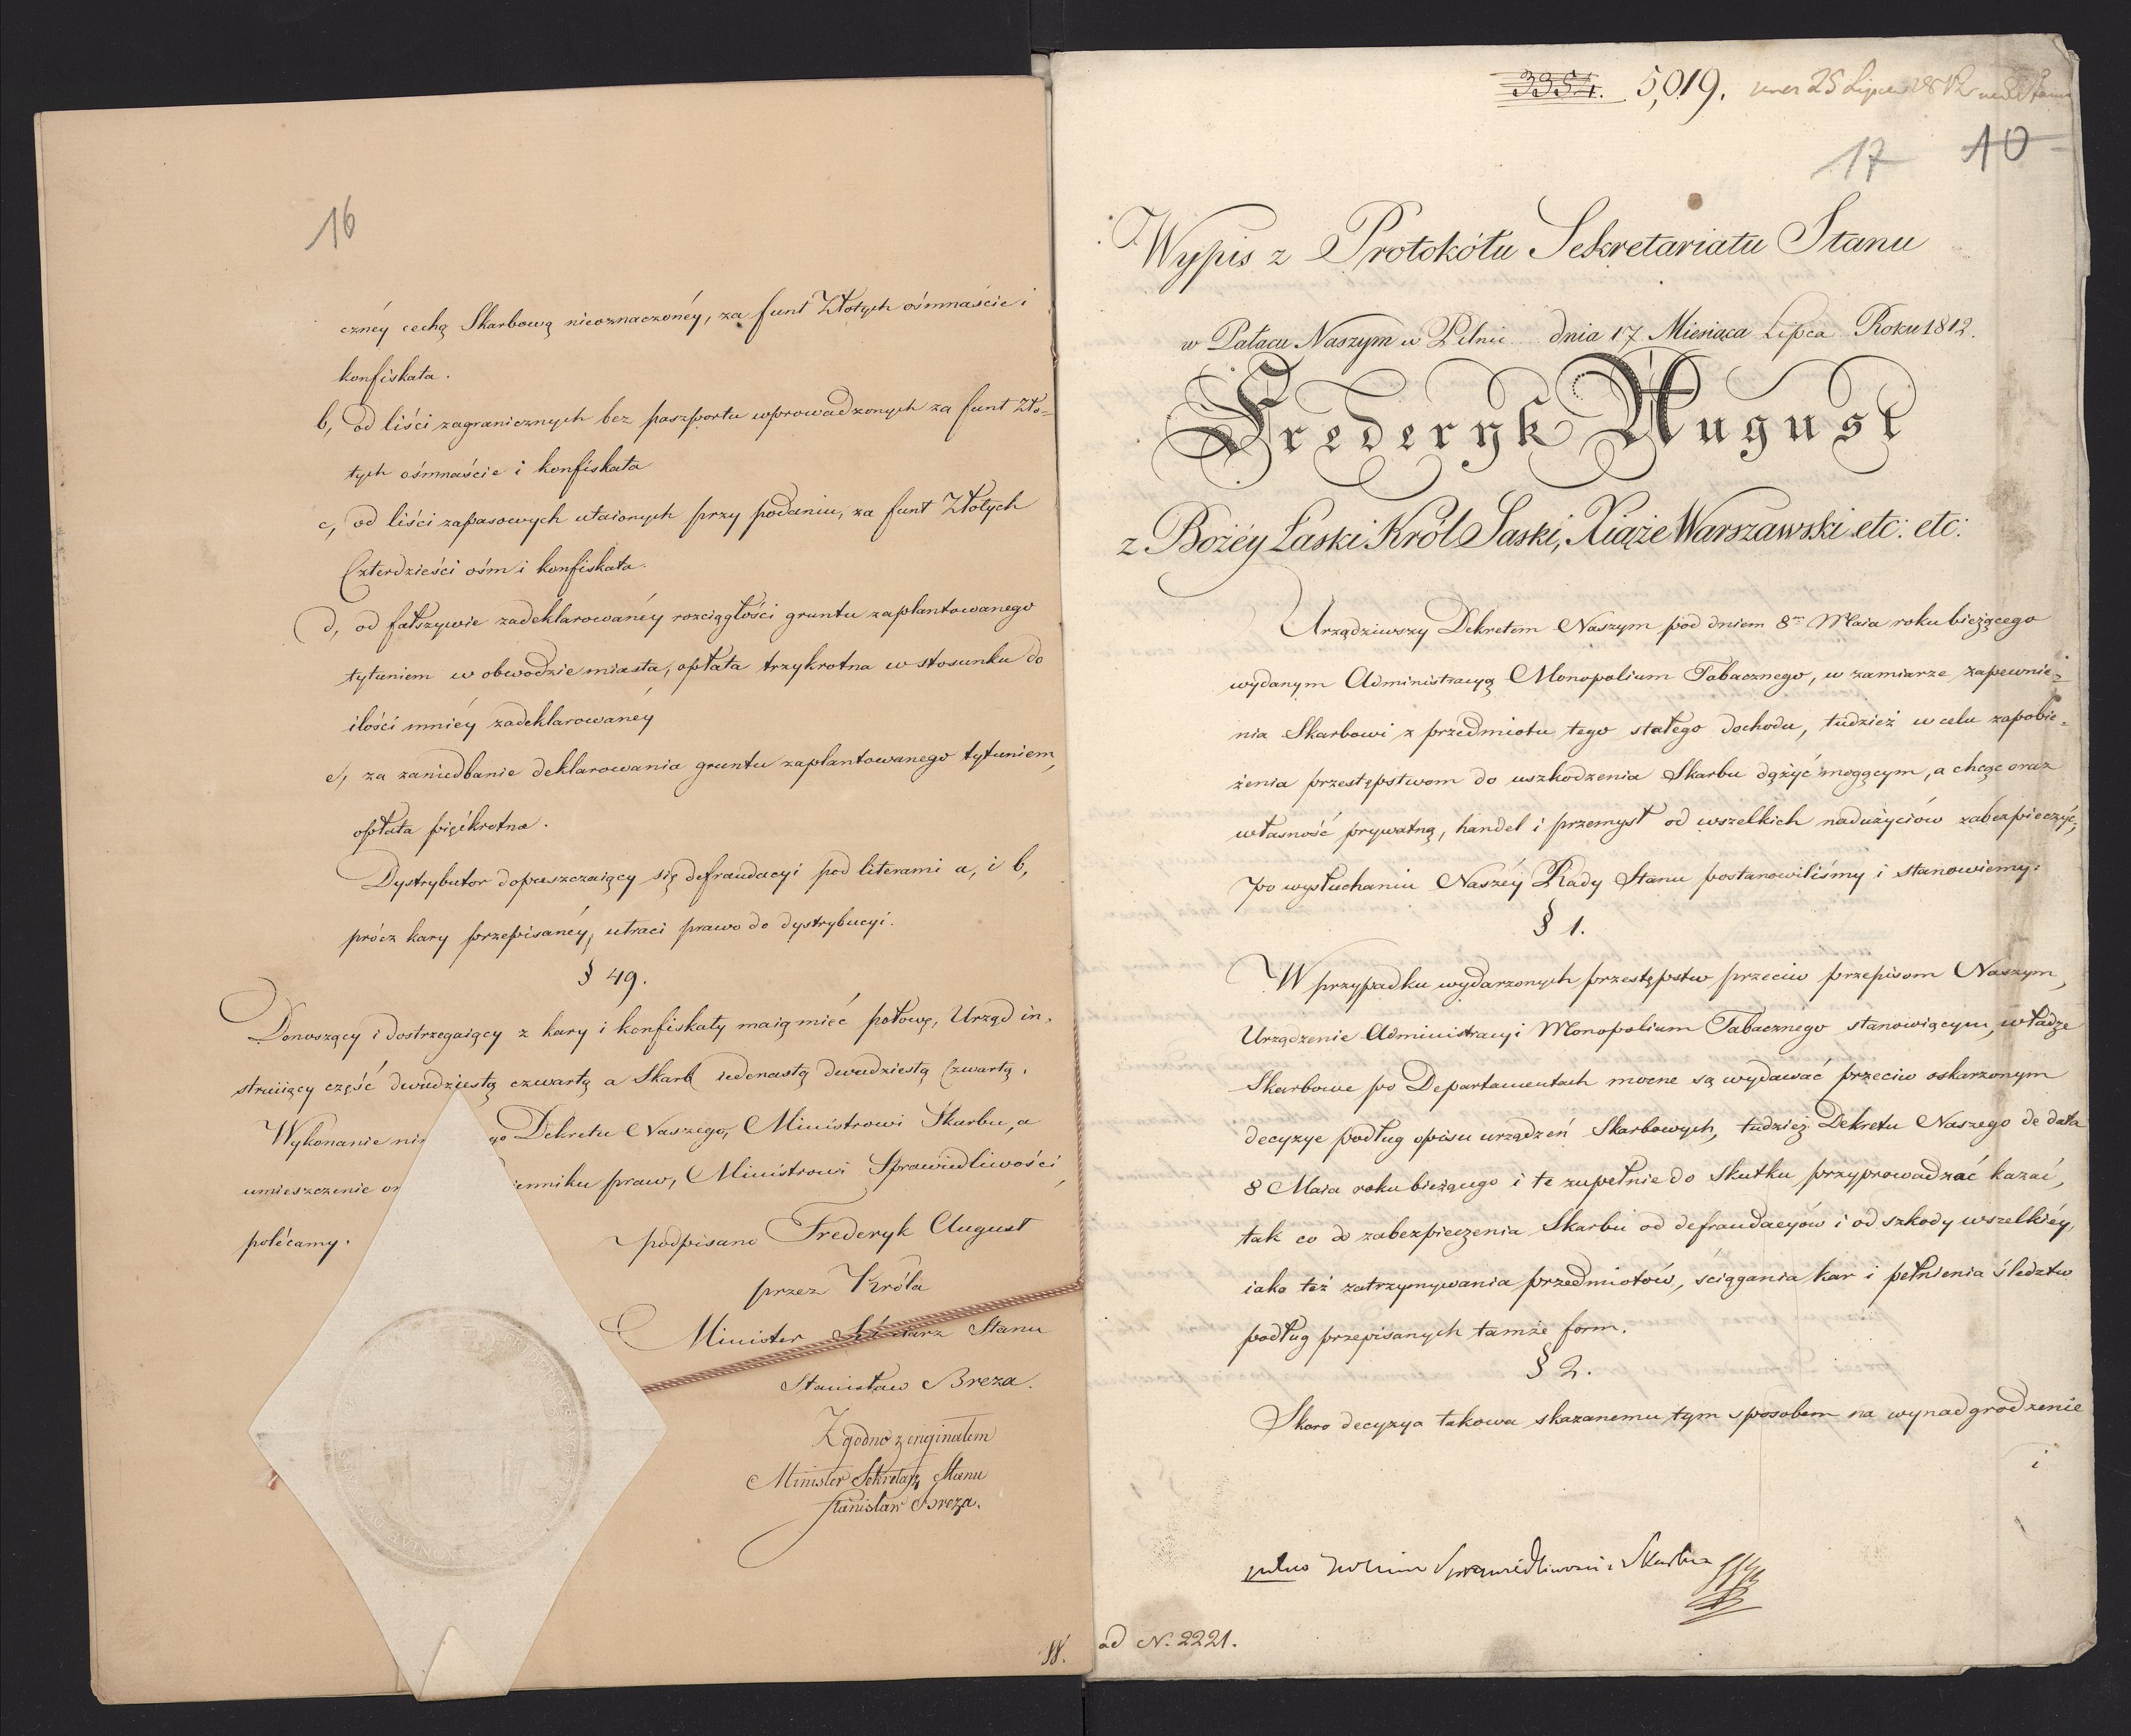 16
cznéy cechą Skarbową nieoznaczonéy, za funt Złotych ośmnaście i
konfiskata.
b, od liści zagranicznych bez paszportu wprowadzonych za funt Zło-
tych ośmnaście i konfiskata
c, od liści zapasowych utaionych przy podaniu, za funt Złotych
Czterdzieści ośm i konfiskata.
d, od fałszywie zadeklarowanéy rozciągłości gruntu zaplantowanego
tytuniem w obwodzie miasta, opłata trzykrotna w stosunku do
ilości mniéy zadeklarowanéy
e, za zaniedbanie deklarowania gruntu zaplantowanego tytuniem,
opłata pięćkrotna.
Dystrybutor dopuszczaiący się defraudacyi pod literami a, i b,
prócz kary przepisanéy, utraci prawo do dystrybucyi.
§ 49.
Donoszący i dostrzegaiący z kary i konfiskaty maią mieć połowę, Urząd in-
struiący część dwudziestą czwartą a Skarb iedenastą dwudziestą Czwartą.
Wykonanie go Dekretu Naszego, Ministrowi Skarbu, a
umieszczenie enniku praw, Ministrowi Sprawiedliwości,
polécamy.
podpisano Frederyk August
przez Króla
Minister Stanu
Stanisław Breza.
Zgodno z originałem
Minister Sekretarz Stanu
Stanisław Breza.
W.
3354. 5,019. 25 Lipca 1812
17 10
Wypis z Protokółu Sekretariatu Stanu
w Pałacu Naszym w Pilnic dnia 17 Miesiąca Lipca Roku 1812.
Frederyk August
z Bożéy Łaski Król Saski, Xiąże Warszawski etc: etc:
Urządziwszy Dekretem Naszym pod dniem 8m Maia roku bieżącego
wydanym Administracyą Monopolium Tabacznego, w zamiarze zapewnie-
nia Skarbowi z przedmiotu tego stałego dochodu, tudzież w celu zapobie-
żenia przestępstwom do uszkodzenia Skarbu dążyć mogącym, a chcąc oraz
własność prywatną, handel i przemysł od wszelkich nadużyciów zabezpieczyć,
po wysłuchaniu Naszéy Rady Stanu postanowiliśmy i stanowiemy:
§ 1.
W przypadku wydarzonych przestępstw przeciw przepisom Naszym,
Urządzenie Administracyi Monopolium Tabacznego stanowiącym, władze
Skarbowe po Departamentach mocne są wydawać przeciw oskarzonym
decyzye podług opisu urządzeń Skarbowych, tudzież Dekretu Naszego de dato
8 Maia roku bieżącego i te zupełnie do skutku przyprowadzać kazać,
tak co do zabezpieczenia Skarbu od defraudacyów i od szkody wszelkiéy,
iako też zatrzymywania przedmiotów, ściągania kar i pełnienia śledztw
podług przepisanych tamże form.
§ 2.
Skoro decyzya takowa skazanemu tym sposobem na wynadgrodzenie
i
Sprawiedliwości i Skarbu
ad N. 2221.